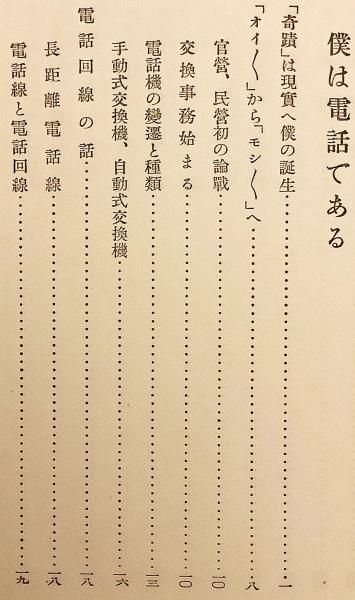 僕は電話である
「奇蹟」は現實へ僕の誕生……一
「オイ〱」から「モシ〱」へ……八
官營、民營初の論戰……一〇
交換事務始まる……一〇
電話機の變遷と種類……一三
手動式交換機、自動式交換機……一六
電話回線の話……一八
長距離電話線……一八
電話線と電話回線……一九